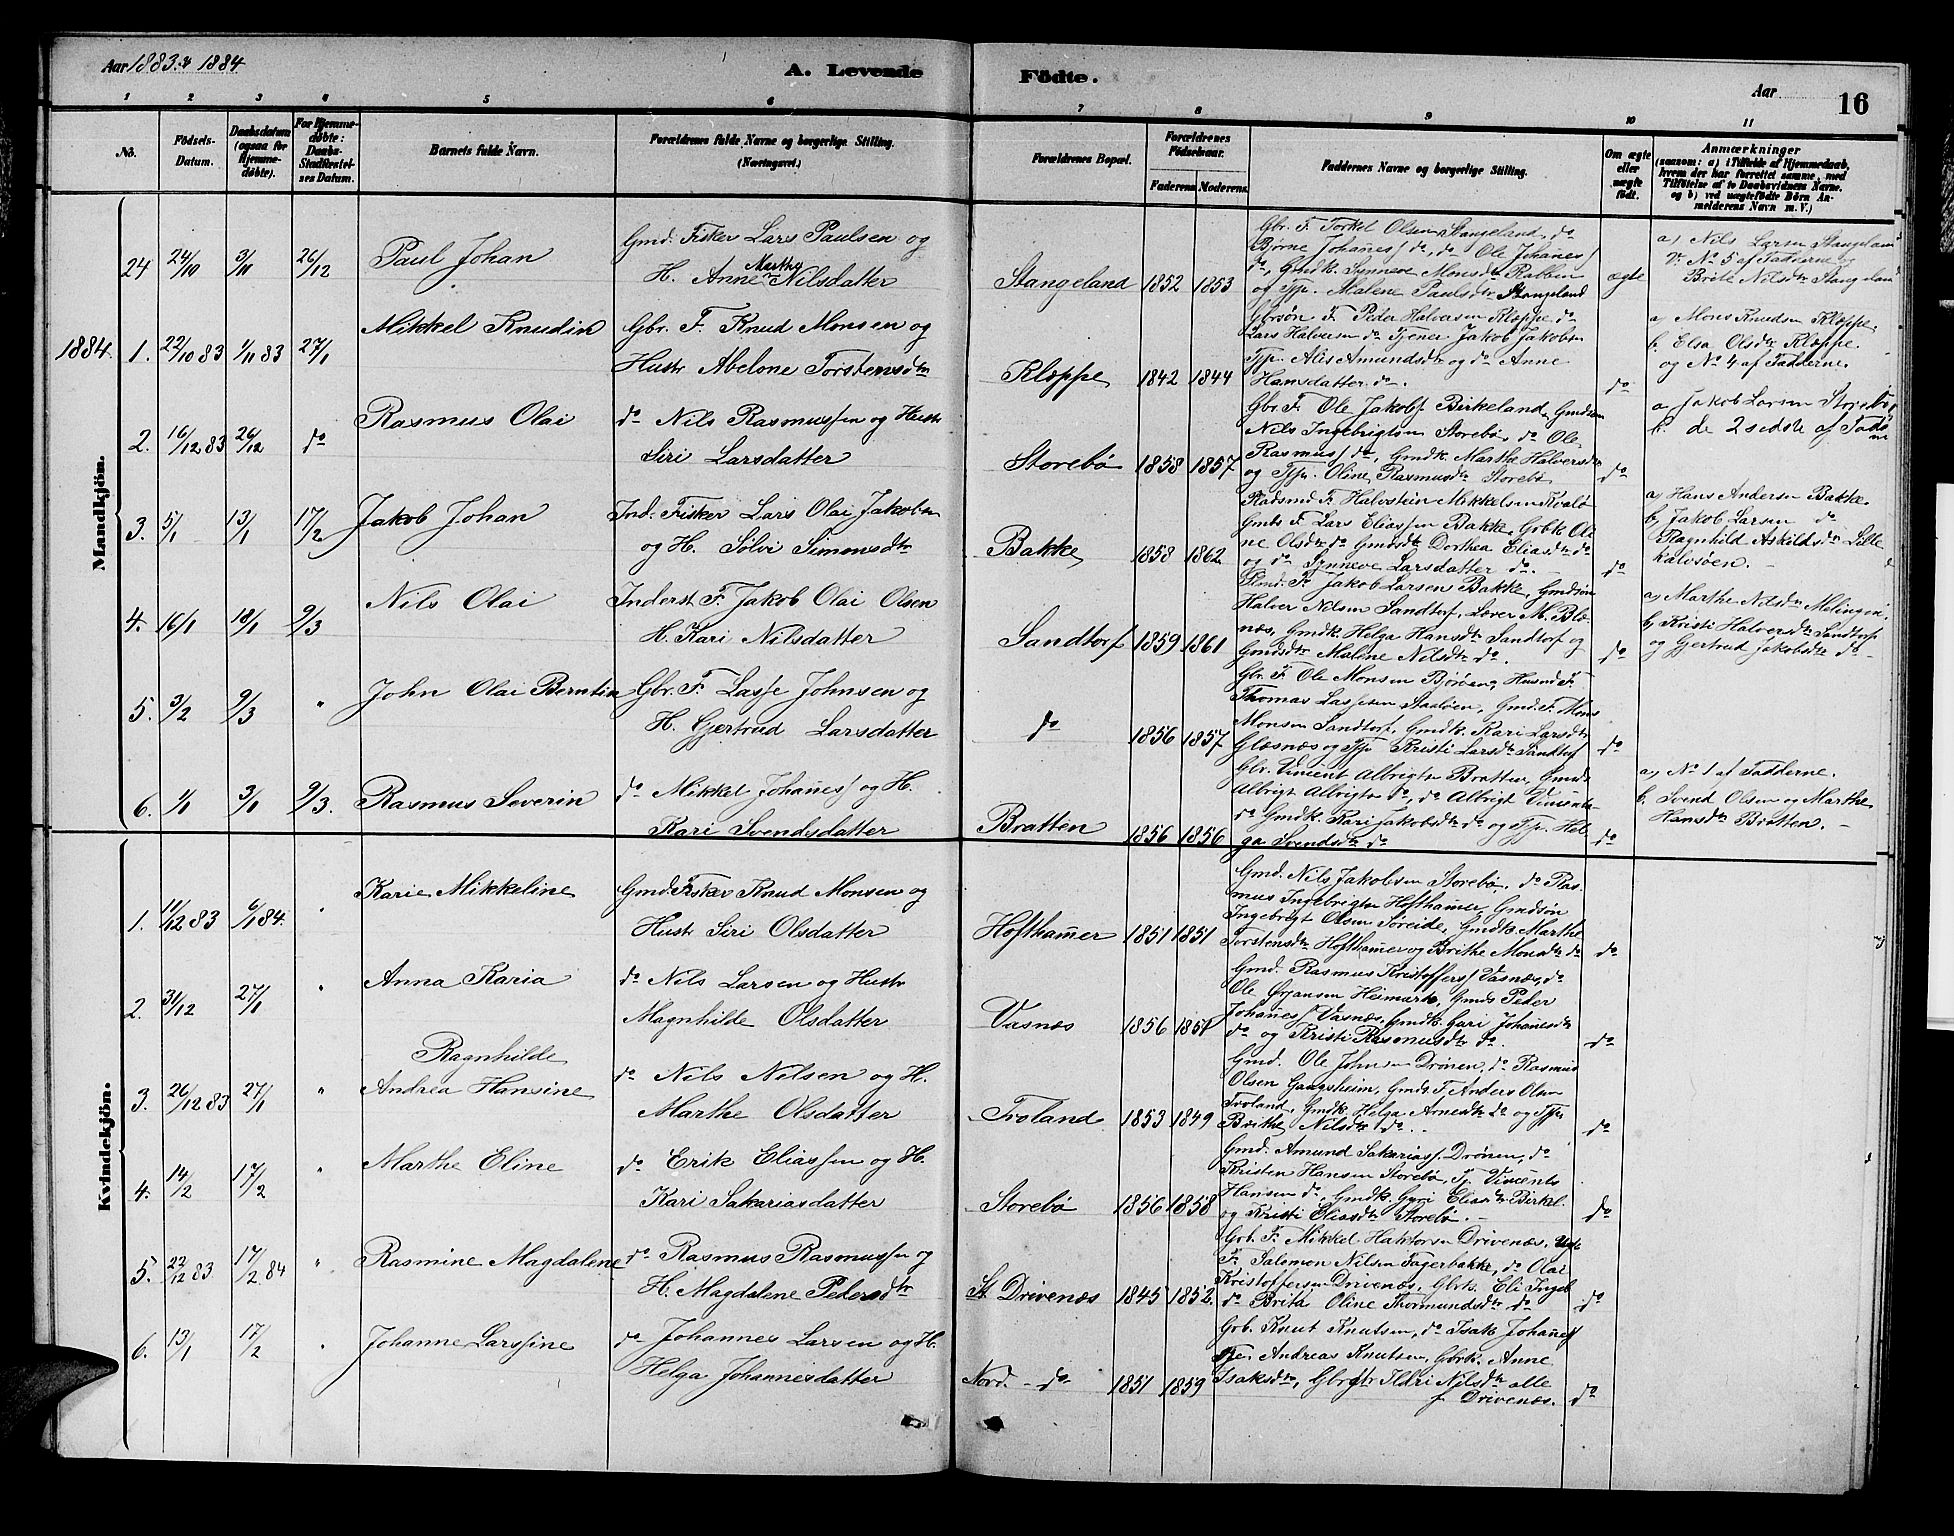 Aar 1883 & 1884
A. Levende
Födte.
Aar
16
1 2 3 4 5 6 7 8 9 10 11
No.
Födsels-
Datum.
Daabsdatum
(ogsaa for
Hjemme-
døbte).
For Hjemme-
døbte:
Daabs-
Stadfæstel-
ses Datum.
Barnets fulde Navn.
Forældrenes fulde Navne og borgerlige Stilling.
(Næringsvei.)
Forældrenes Bopæl.
Forældrenes
Födselsaar.
Faderens. Moderens.
Faddernes Navne og borgerlige Stilling.
Om ægte
eller
uægte
født.
Anmærkninger
(saasom: a) i Tilfælde af Hjemmedaab,
hvem der har forrettet samme, med
Tilföielse af to Daabsvidners Navne.
og b) ved uægtefødte Børn An-
melderens Navn m. V.)
Mandkjön.
24 24/10 3/11 26/12 Paul Johan
Gmd. Fisker Lars Paulsen og
H. Anne Marthe Nilsdatter
Stangeland 1852 1853
Gbr. F. Torkel Olsen Stangeland, do
Bjørne Johanes/ do, do Ole Johanes/
do, Gmdk. Synneve Monsdtr Rabben
og Tjp. Malene Paulsdtr Stangeland
ægte
a) Nils Larsen Stangelan
No 5 af Fadderne
Brite Nilsdtr Stangelan
1884. 1. 22/10 83 1/11 83 27/1 Mikkel Knudin
Gbr. F. Knud Monsen og
Hustr Abelone Torstensdtr
Kleppe 1842 1844
Gbrsøn F. Peder Halvorsen Kleppe do
Lars Halvorsen do Tjener Jakob Jakobsen
Tjp. Alis Amundsdtr og do Anne
Hansdatter do.
do
a) Mons Knudsen Kleppe.
b. Elsa Olsdtr Kleppe.
og No 4 af Fadderne.
2. 16/12 83 26/12 do Rasmus Olai
do Nils Rasmussen og Hustr
Siri Larsdatter
Storebø 1858 1857
Gbr. F. Ole Jakobs/ Birkeland, Gmdsøn
Nils Ingebrigtsen Storebø, do Ole
Rasmus/ do, Gmdk. Marthe Halversdtr
og Tjp. Oline Rasmusdtr Storebø
do
a Jakob Larsen Storebø,
b. de 2 sidste af Fadd
3. 5/1 13/1 17/2 Jakob Johan
Ind. Fisker Lars Olai Jakobsen
og H. Sølvi Simonsdtr
Bakke 1858 1862
Pladsmd F. Halvstein Mikkelsen Kvalø
Gmds F. Lars Eliassen Bakke, Gbrk Ole
ne Olsdtr do Gmdsdtr Dorthea Eliasdtr do
og do Synneve Larsdatter do.
do
a) Hans Andersen Bakke
b) Jakob Larsen do
Ragnhild Askildsdtr Lille
kalvsøen.
4. 16/1 18/1 9/3 Nils Olai
Inderst F. Jakob Olai Olsen
H. Kari Nilsdatter
Sandtorf 1859 1861
Gmd. F. Jakob Larsen Bakke, Gmdsøn
Halver Nilsen Sandtorf, Lærer M. Blæ-
næs, Gmdk. Helga Hansdtr Sandtorf og
Gmdsdtr Malene Nilsdtr do.
do
a) Marthe Nilsdtr Melingen,
b) Kristi Halversdtr Sandtorf
og Gjertrud Jakobsdtr do
5. 3/2 9/3 " John Olai Berntin
Gbr. F. Lasse Johnsen og
H. Gjertrud Larsdatter
do 1856 1857
Gbr. F. Ole Monsen Bjørøen, Husmd F.
Thomas Lassesen Stoløen, Gmd. F. Mons
Monsen Sandtorf, Gmdk. Kari Larsdtr
Glæsnæs og Tjp Kristi Larsdtr Sandtorf
do
6. 1/1 3/1 9/3. Rasmus Severin
do Mikkel Johanes/ og H.
Kari Svendsdatter
Bratten 1856 1856
Gbr. Vincent Albrigts Bratten, Gmds
Albrigt Albrigts do, do Albrigt Vincents-
do Gmdk. Kari Jakobsdtr do og Tjp. Hel-
ga Svendsdtr do
do
a) No 1 af Fadderne.
b. Svend Olsen og Marthe
Hansdtr Bratten.
Kvindekjön.
1. 11/12 83 6/1 84. " Karie Mikkeline
Gmd. Fisker Knud Monsen og
Hustr Siri Olsdatter
Hofthamer 1851 1851
Gmd. Nils Jakobsen Storebø, do Ras-
mus Ingebrigtsen Hofthamer, Gmdsøn
Ingebrigt Olsen Søreide, Gmdk. Marthe
Torstensdtr Hofthamer og Brithe Monsdtr do
do
2. 31/12 27/1 " Anna Karia
do Nils Larsen og Hustr
Magnhilde Olsdatter
Vasnæs 1856 1851
Gmd. Rasmus Kristoffers/ Vasnæs, do
Ole Ørjansen Heimark, Gmds Peder
Johanes/ Vasnæs, Gmdk. Gari Johanesdtr
do og Kristi Rasmusdtr do.
do
3. 26/12 83 27/1 " Ragnhilde
Andrea Hansine
do Nils Nilsen og H.
Marthe Olsdatter
Troland 1853 1849
Gmd. Ole Johnsen Drönen, do Rasmus
Olsen Gaugsheim, Gmds F. Anders Olsen
Troland, Gmdk. Helga Arnesdtr do og Tjp.
Brithe Nilsdtr do.
do
4. 14/2 17/2 " Marthe Eline
do Erik Eliassen og H.
Kari Sakariasdatter
Storebø 1856 1858
Gmd. Amund Sakarias/ Drönen, do
Kristen Hansen Storebø, Tj. Vincents
Hansen do, Gmdk. Gyri Eliasdtr Birkel.
og Kristi Eliasdtr Storebø.
do
5. 22/12 83 17/2 84 " Rasmine Magdalene
do Rasmus Rasmussen og
H. Magdalene Pedersdtr
St. Drivenæs 1845 1852.
Gbr. F. Mikkel Haktorsen Drivenæs, Ugk
F. Salomon Nilsen Fagerbakke, do Olai
Kristoffersen Drivenæs, Gbrk. Eli Ingeb
do Brita Oline Thormundsdtr do
do
6. 13/1 17/2 " Johanne Larssine
do Johannes Larsen og H.
Helga Johannesdatter
Nord. - do 1851 1859
Gbr. Knut Knutsen, do Isak Johanes/
Tje. Andreas Knutsen, Gbrk. Anne
Isaksdtr, Gbrdtr Ildri Nilsdtr alle
f Drivenæs.
do